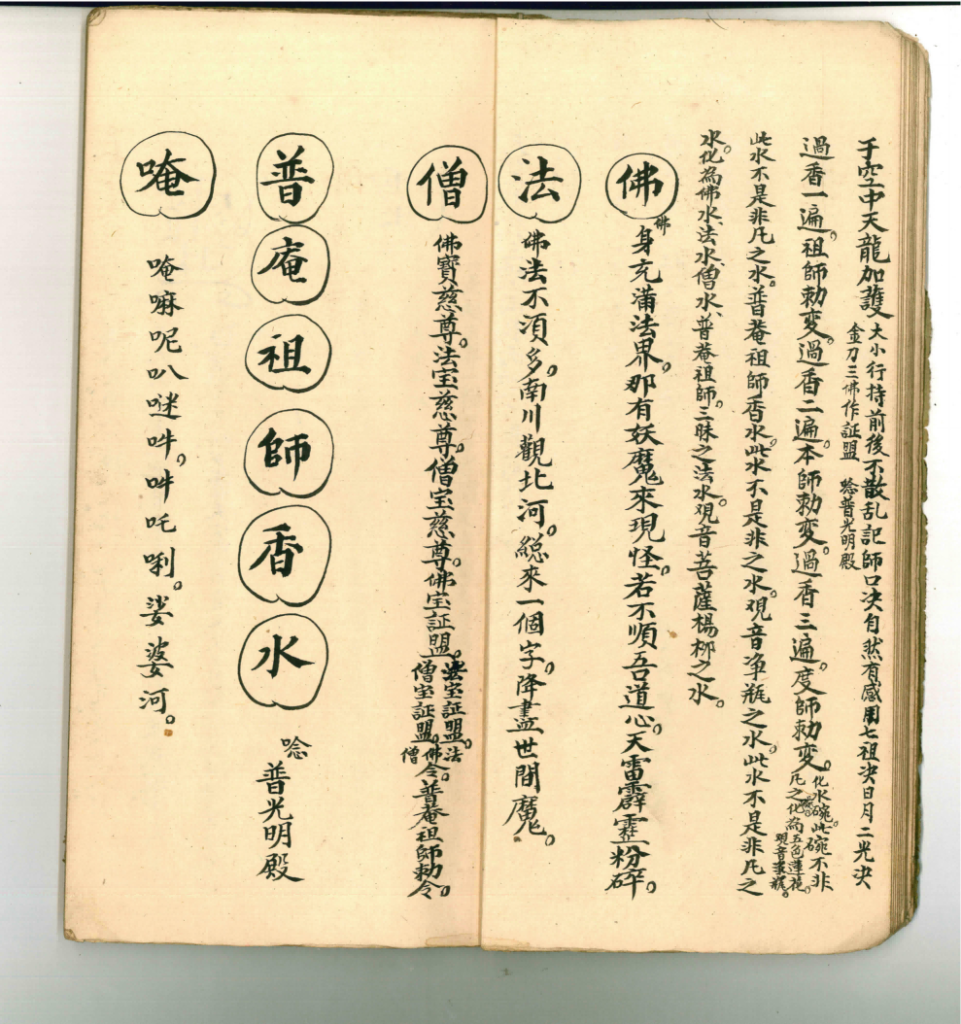 于空中天龍加護 大小行持前後不散乱記師口决自然有感用七祖决日月二光决
金刀三佛作証盟 唸普光明殿
過香一遍。祖師勅变。過香二遍。本師勅变。過香三遍。度師勅变。化水碗。此碗不非
凡之碗。化為五色蓮花。
此水不是非凡之水。普菴祖師香水。此水不是非之水。观音净瓶之水。此水不是非凡之
水。化為佛水、法水、僧水、普菴祖師。三昧之法水。观音菩薩楊柳之水。
佛 佛身充满法界。那有妖魔來現怪。若不順吾道心。天雷霹靂粉碎。
法 佛法不須多。南川觀北河。総來一個字。降盡世間魔。
僧 佛寶慈尊。法宝慈尊。僧宝慈尊。佛宝証盟。法宝証盟。僧宝証盟。佛法僧令。普庵祖師勅令。
普庵祖師香水 唸普光明殿
唵 唵嘛呢叭㖷吽。吽吒唎。娑婆河。